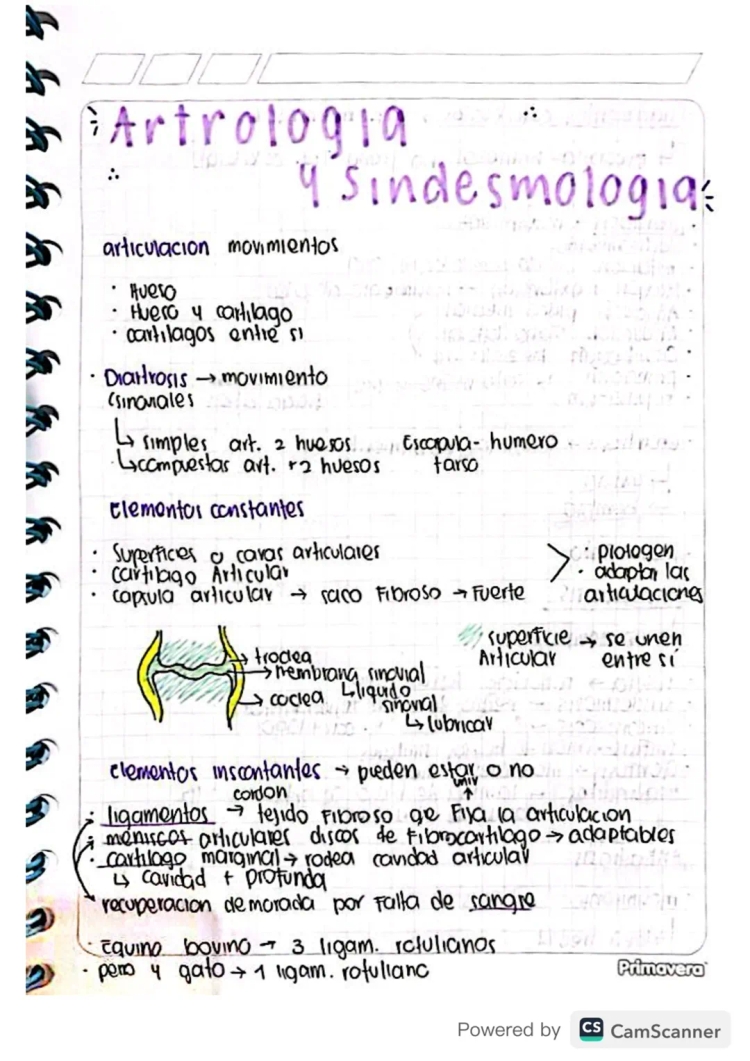 Artrologia
y Sindesmologia
articulacion movimientos
· Hueso
· Hueso y cartilago
· cartilagos entre si
· Diartrosis → movimiento
(sinoviales
↳ simples art. 2 huesos Escapula-humero
↳ compuestas art. +2 huesos tarso
Elementos constantes
· Superficies o caras articulares
· cartilago Articular
· capsula articular → saco Fibroso → Fuerte
· protogen
· adaptar las
articulaciones
superficie → se unen
Articular entre sí
troclea
membrana sinovial
↳ liquido
sinovial
↳ lubricar
coclea
elementos inscontantes → pueden estar o no
cordon unir
· ligamentos → tejido Fibroso qe Fija la articulacion
· meniscos articulares discos de Fibrocartilago → adaptables
· cartilago marginal → rodea cavidad articular
↳ cavidad + profunda
recuperacion demorada por Falta de sangre
· Equino bovino → 3 ligam. rotulianos
· perro y gato → 1 ligam. rotuliano
Primavera
Powered by CS CamScanner